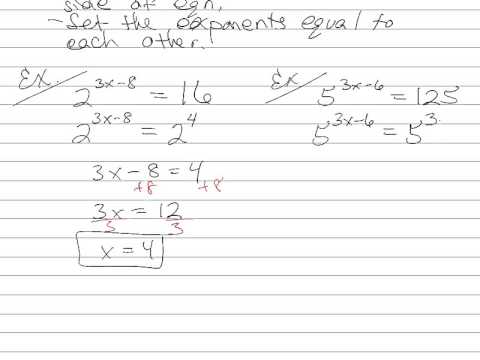 side of eqn,
- Set the exponents equal to
each other!
Ex. 2^(3x-8) = 16
2^(3x-8) = 2^4
3x - 8 = 4
+8 +8
3x = 12
3 3
x = 4
Ex 5^(3x-6) = 125
5^(3x-6) = 5^3